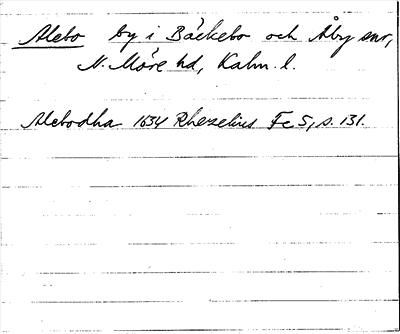 Alebo by i Bäckebo och Åby snr,
N. Möre hd, Kalm. l.
Alebodha 1634 Rhezelius Fc 5, s. 131.